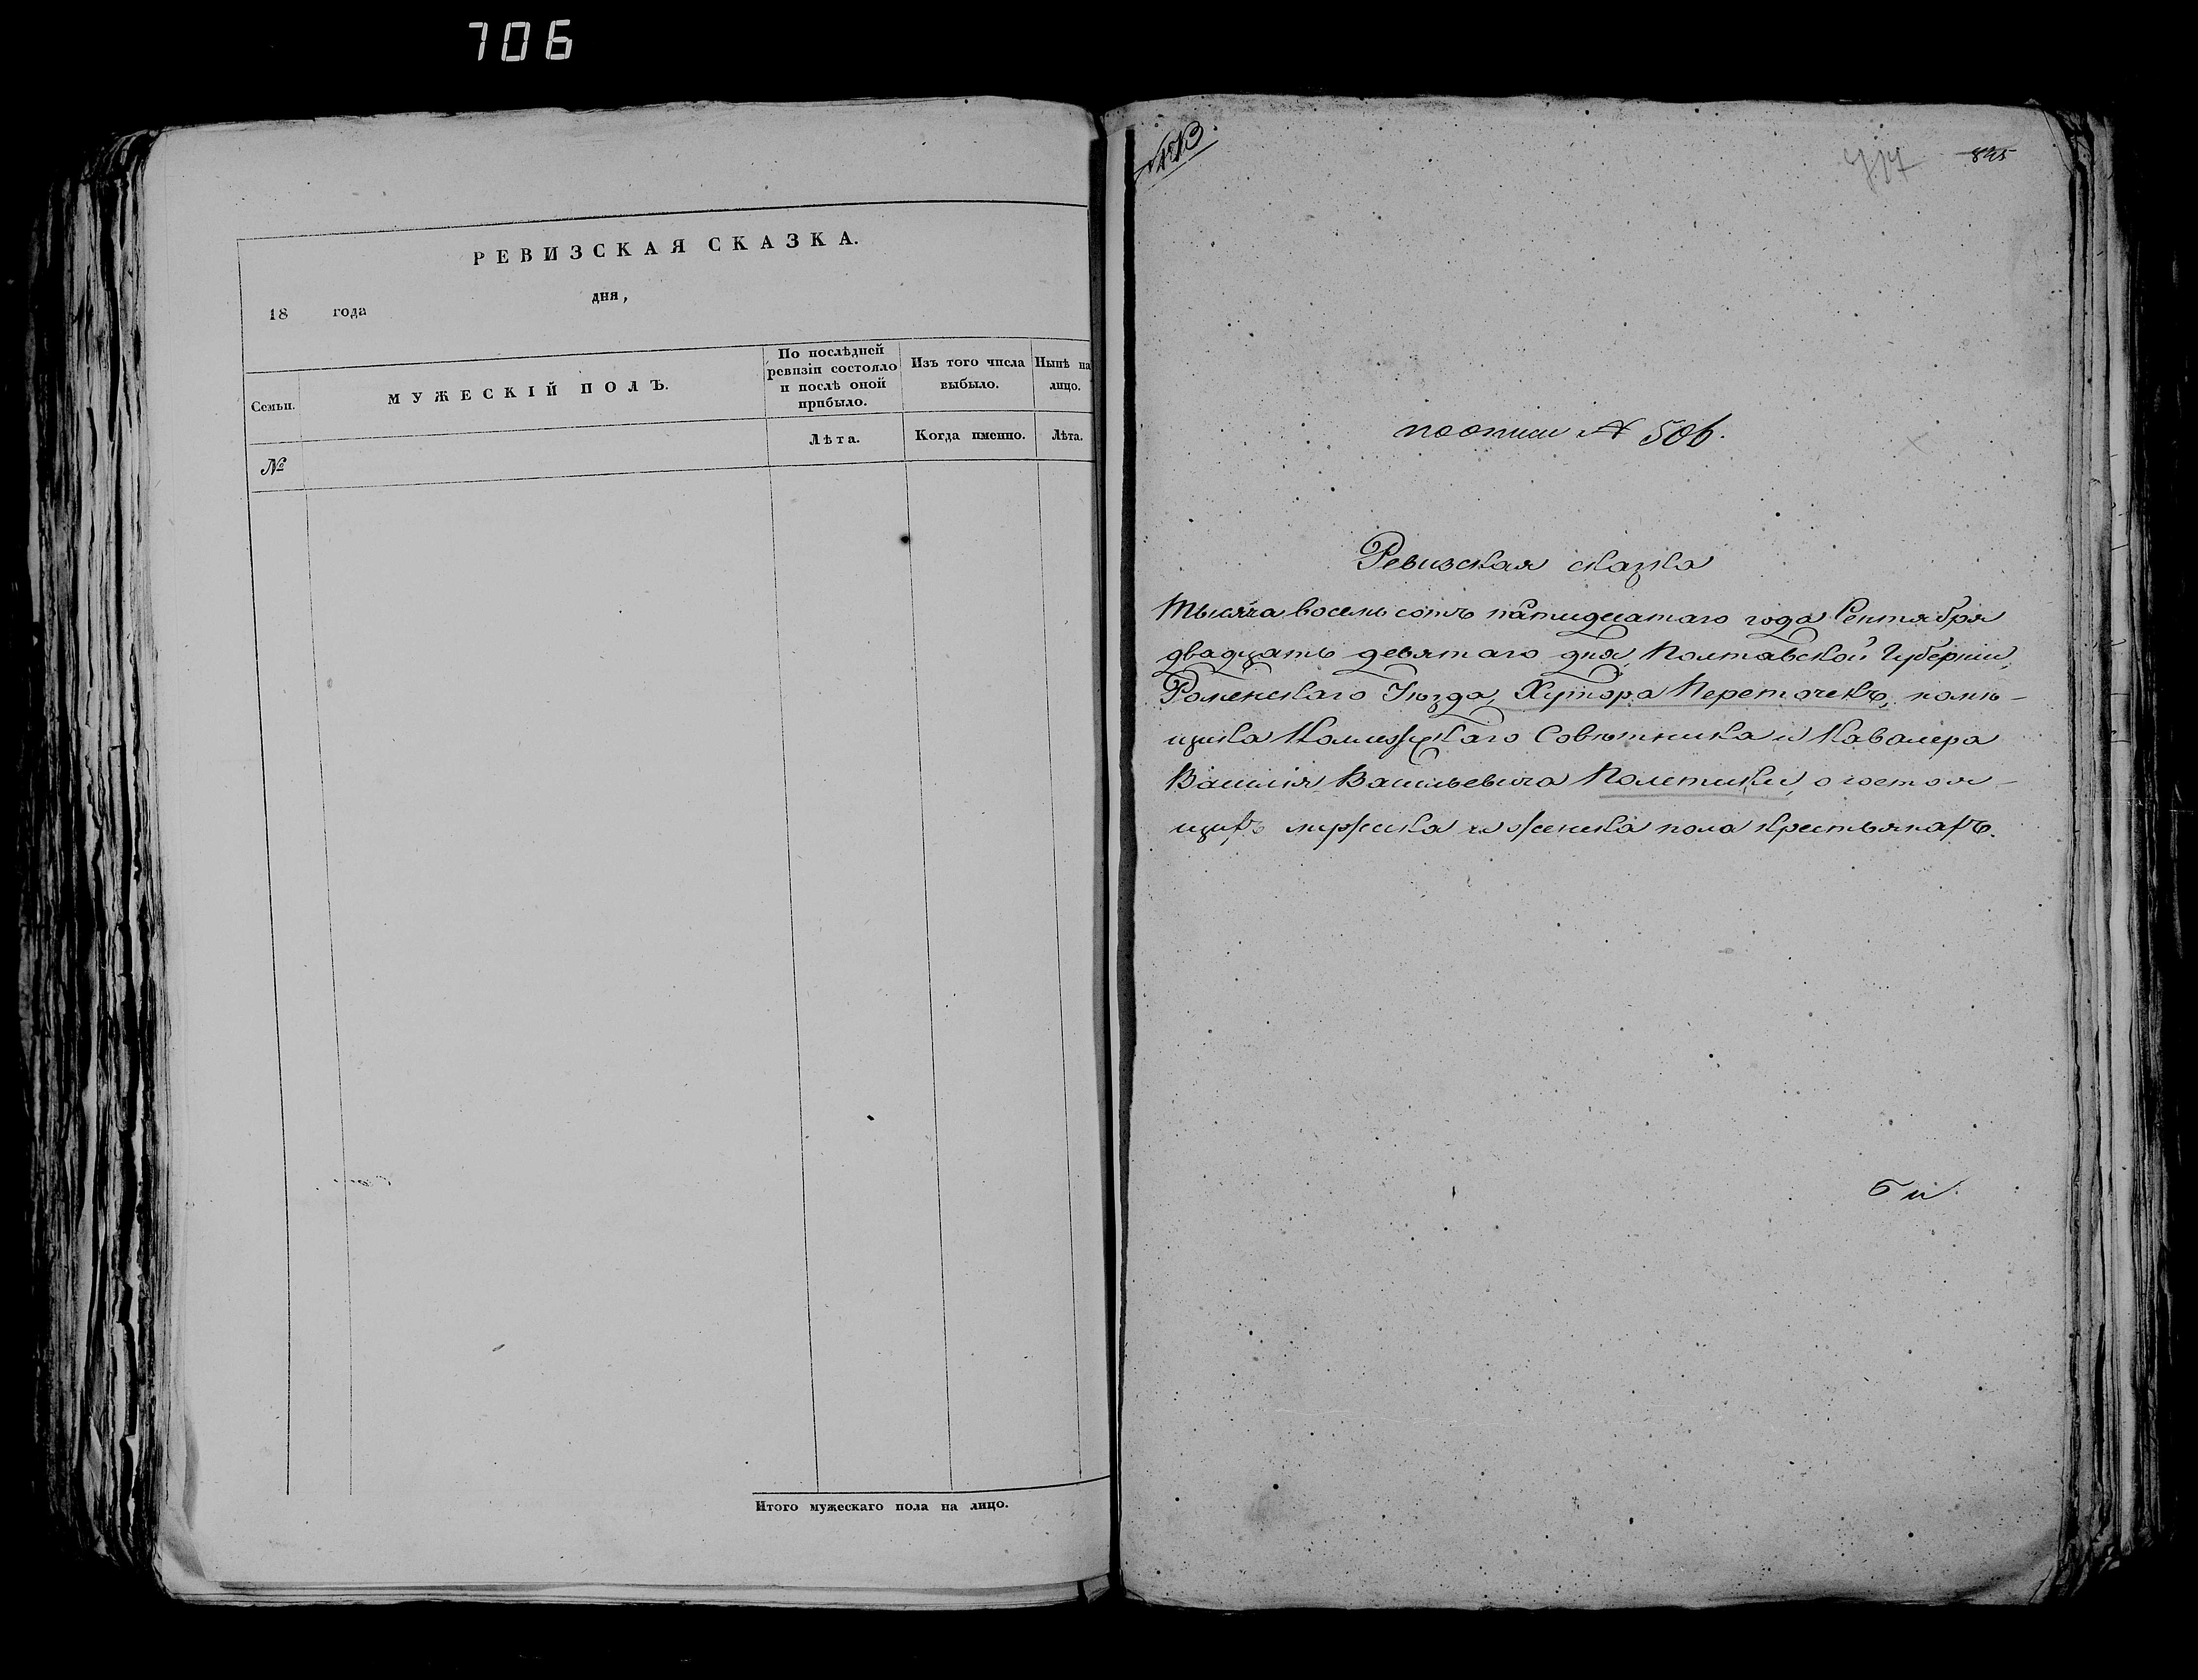 706
РЕВИЗСКАЯ СКАЗКА.
18 года дня,
Семьи.
МУЖЕСКІЙ ПОЛЪ.
По послѣдней
ревизіи состояло
и послѣ оной
прибыло.
Изъ того числа
выбыло.
Нынѣ на
лицо.
Лѣта.
Когда именно.
Лѣта.
№
Итого мужескаго пола на лицо.
по описи № 506.
Ревизская сказка
Тысяча восемь сотъ пятидесятаго года Сентября
двадцать девятаго дня, Полтавской Губерніи,
Роменскаго Уѣзда, Хутора Переточекъ, помѣ-
щика Коллежскаго Совѣтника и Кавалера
Василія Васильевича Полетики, о состоя-
щихъ мужеска и женска пола крестьянахъ.